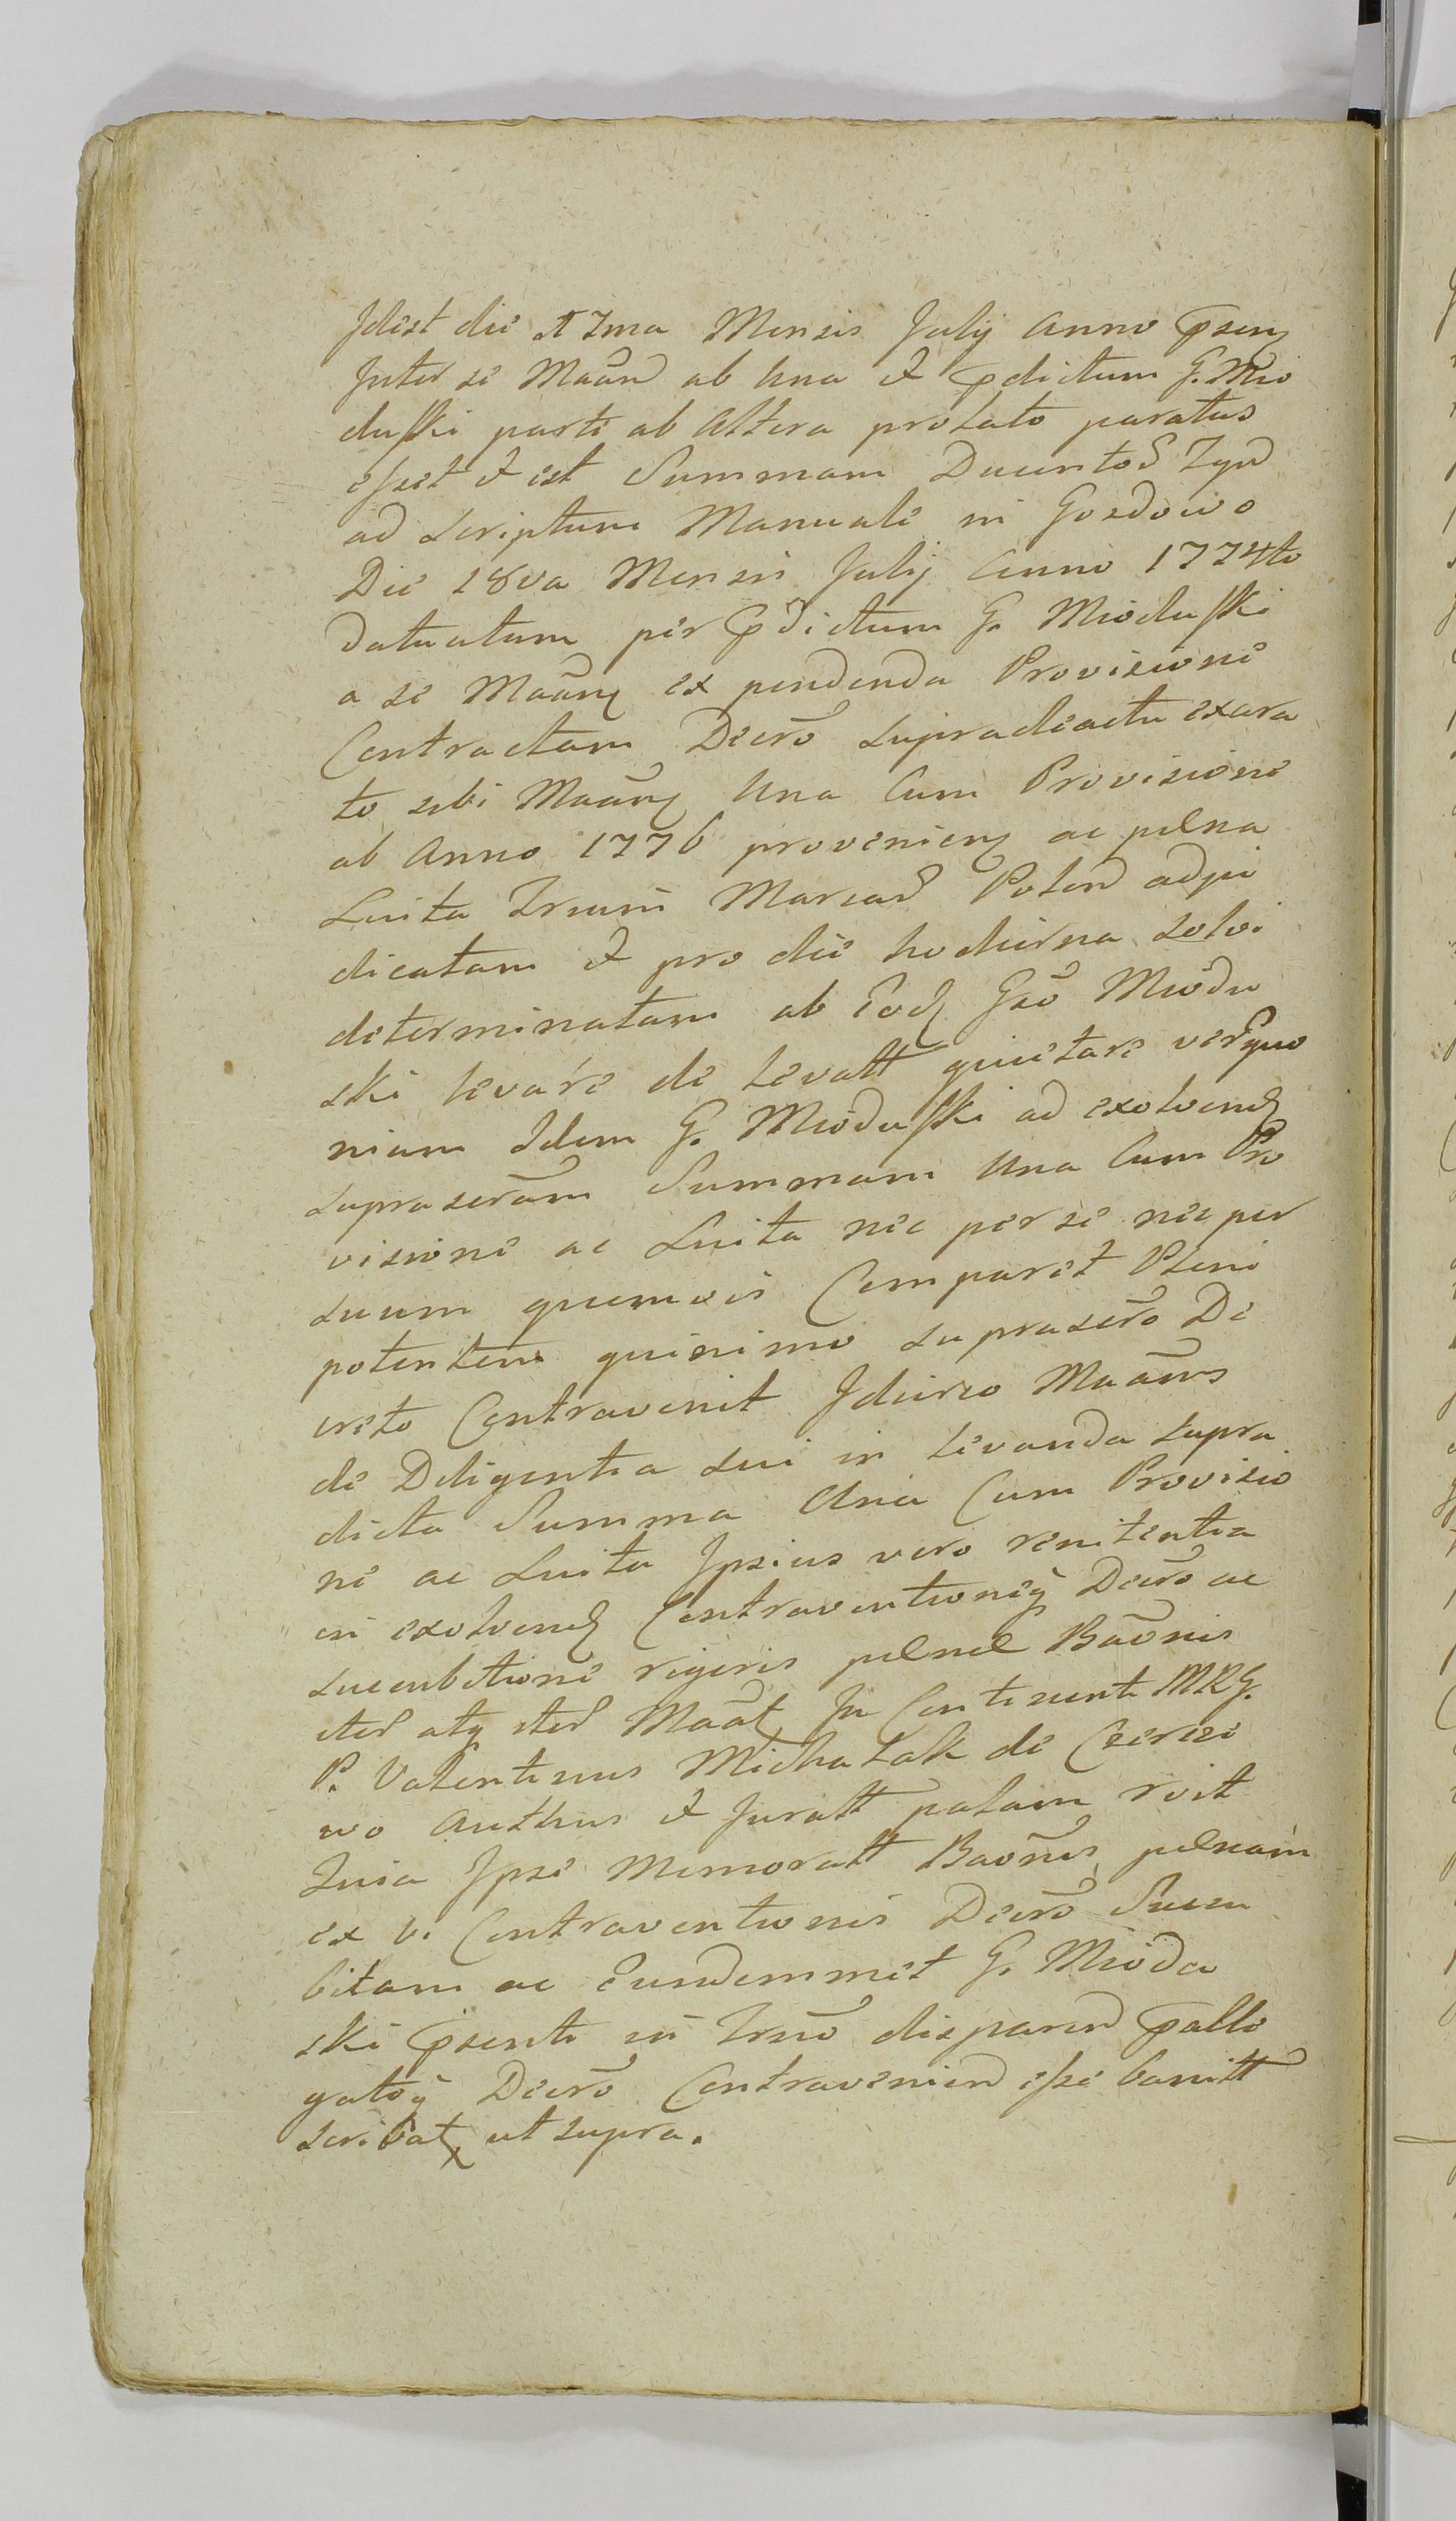 Idest die 17ma Mensis July Anno Pseng
Inter se Maãnd ab una et Pdictum G. Mio
duski parte ab Altera prolato paratus
esset et est Summam Ducentos Tynd
ad Scriptum Manuale in Gozdowo
Die 18va Mensis July Anno 1774to
datuatum per Pdictum G. Mioduski
a se Maãng ex pendenda Provisione
Contractam Decrõ supradicactu exara
to sibi Maãng Una Cum Provisione
ab Anno 1776 provenieng ac pelna
Luita Trium Marcad Polond adju
dicatam et pro die hodierna solvi
determinatam ab Eod Gsõ Miodu
ski levare de levatt quietare ver quo
niam Idem G. Mioduski ad exolvend
suprascrãm Summam Una Cum Pro
visione ac Luita nec per se nec per
suum quemvis Comparet Pleni
potentem quinimo suprascrõ De
creto Contravenit Idcirco Maãns
de Diligentia sui in levanda supra
dicta Summa Una Cum Provisio
ne ac Luita Ipsius vero renitentia
in exolvend Contraventioneq Decrõ ac
succubitione rigoris pelnel Baõnis
ited atq ited Maãt In Continenti MRG.
P. Valentinus Michalak de Czercze
wo Authus et Juratt palam roit
Quia Ipse Memoratt Baõnis pelnam
ex vi Contraventionis Decrõ Succu
bitam ac Eundemmet G. Miodu
ski Psenti in Trnõ disparend Pallo
gatoq Decrõ Contraveniend esse banitt
scribat ut supra.